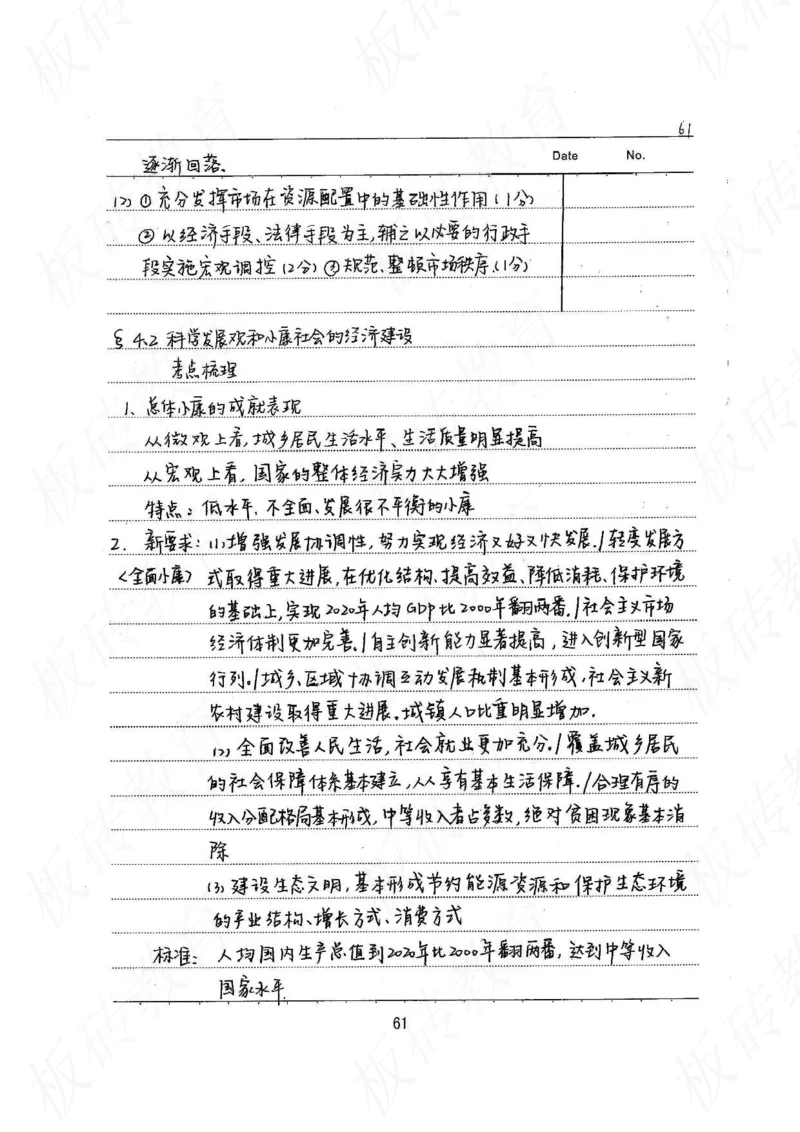 61
Date No.
逐渐回落.
(2) ①充分发挥市场在资源配置中的基础性作用(1分)
②以经济手段、法律手段为主,辅之以必要的行政手
段实施宏观调控(2分)③规范、整顿市场秩序.(1分)
§4.2 科学发展观和小康社会的经济建设
考点梳理
1、总体小康的成就表现
从微观上看,城乡居民生活水平、生活质量明显提高
从宏观上看,国家的整体经济实力大大增强
特点:低水平.不全面、发展很不平衡的小康
2. 新要求:(1)增强发展协调性,努力实现经济又好又快发展./转变发展方
<全面小康> 式取得重大进展,在优化结构、提高效益、降低消耗、保护环境
的基础上,实现2020年人均GDP比2000年翻两番./社会主义市场
经济体制更加完善./自主创新能力显著提高,进入创新型国家
行列./城乡、区域协调互动发展机制基本形成,社会主义新
农村建设取得重大进展.城镇人口比重明显增加.
(2)全面改善人民生活,社会就业更加充分./覆盖城乡居民
的社会保障体系基本建立,人人享有基本生活保障./合理有序的
收入分配格局基本形成,中等收入者占多数,绝对贫困现象基本消
除
(3)建设生态文明,基本形成节约能源资源和保护生态环境
的产业结构、增长方式、消费方式
标准:人均国内生产总值到2020年比2000年翻两番,达到中等收入
国家水平.
61
板砖教育